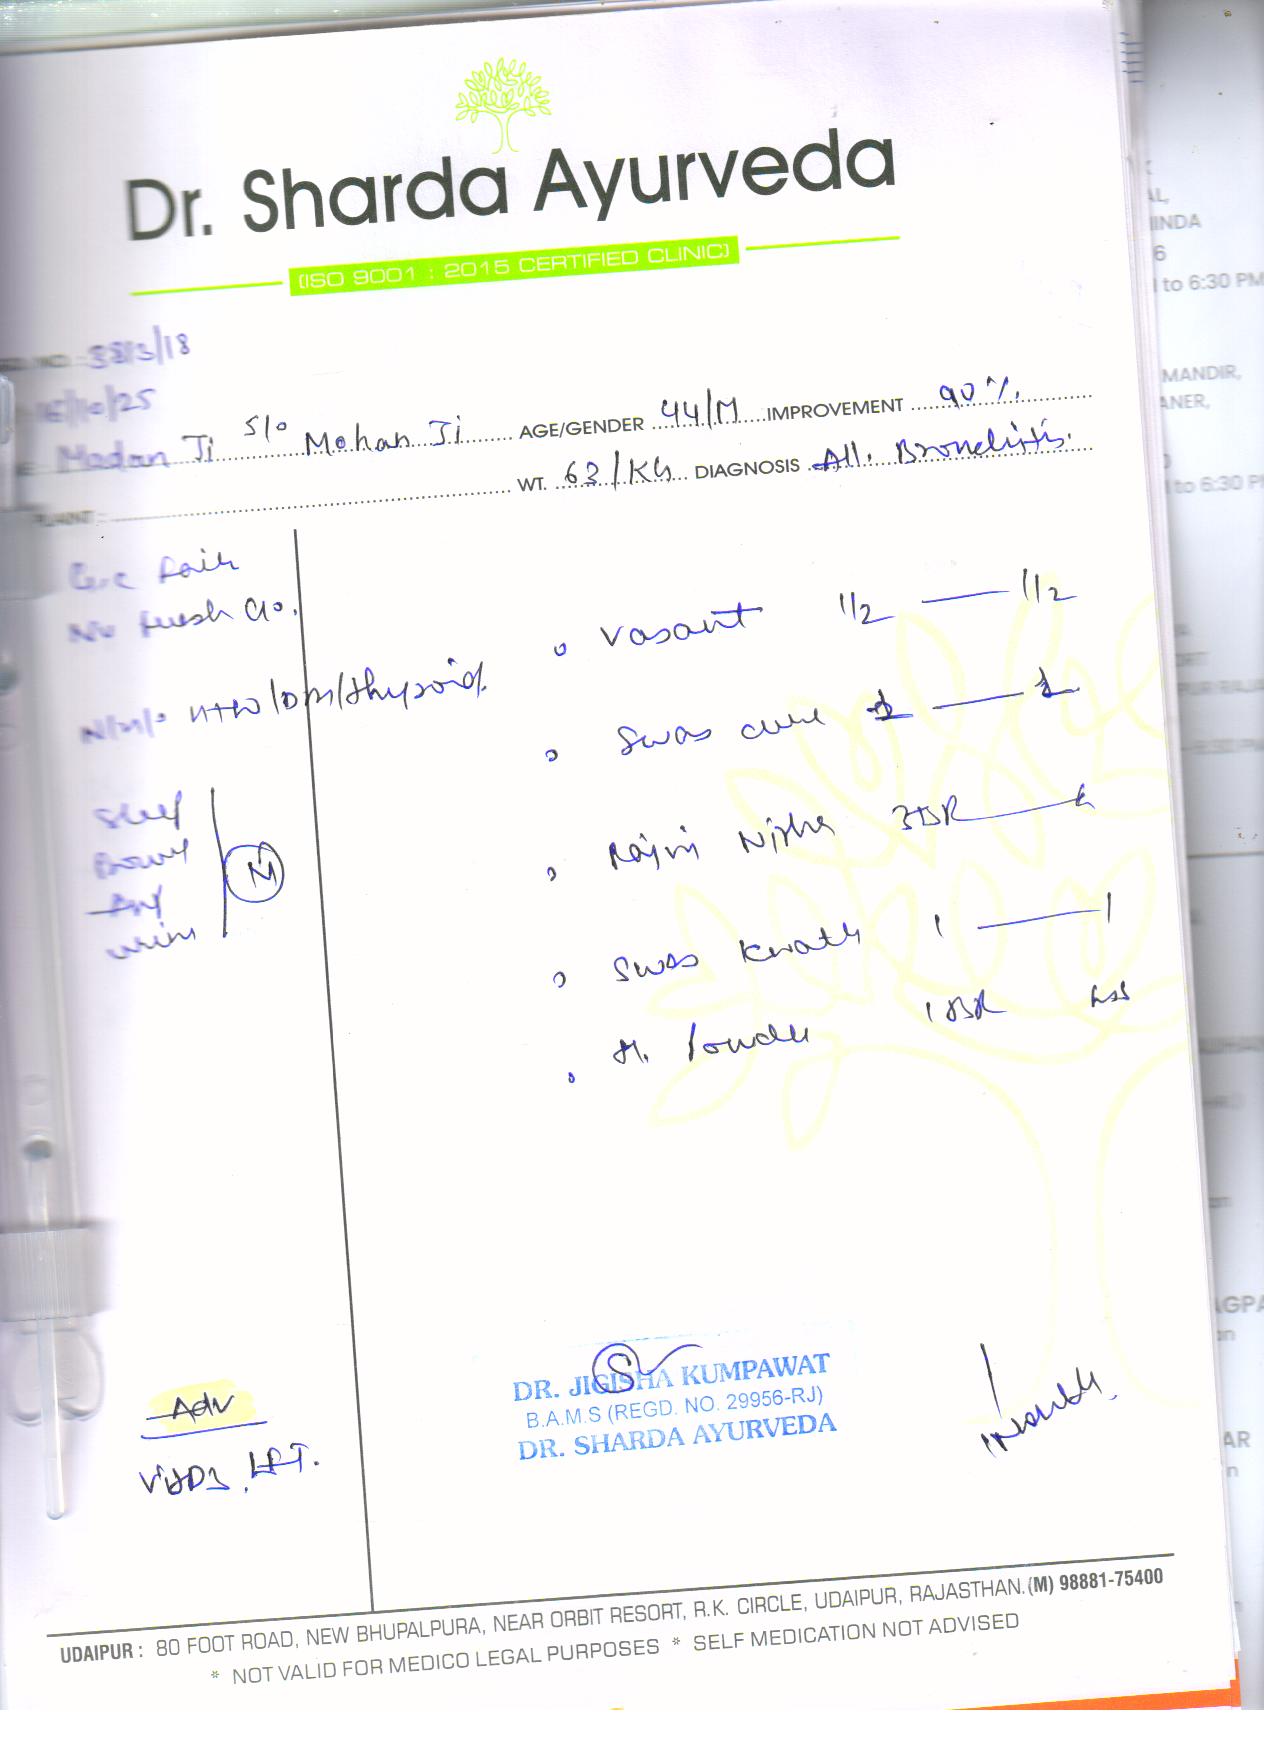 Dr. Sharda Ayurveda
(ISO 9001 : 2015 CERTIFIED CLINIC)
3813/18
16/10/25
Madan Ji S/o Mohan Ji AGE/GENDER 44/M IMPROVEMENT 90%
WT. 63/KG DIAGNOSIS All. Bronchitis.
G.C fair
No fresh C/o.
N/H/o HTN/DM/thyroid.
Sleep
Bowel
App
urine
N
• Vasant 1/2 — 1/2
• Swas cure 2 — 2
• Rajni Nisha 3BR —
• Swas Kwath 1 — 1
• H. Powder 1 BR
Adv
DR. JIGISHA KUMPAWAT
B.A.M.S (REGD. NO. 29956-RJ)
DR. SHARDA AYURVEDA
1 Month.
UDAIPUR : 80 FOOT ROAD, NEW BHUPALPURA, NEAR ORBIT RESORT, R.K. CIRCLE, UDAIPUR, RAJASTHAN. (M) 98881-75400
* NOT VALID FOR MEDICO LEGAL PURPOSES * SELF MEDICATION NOT ADVISED
INDA
to 6:30 PM
MANDIR,